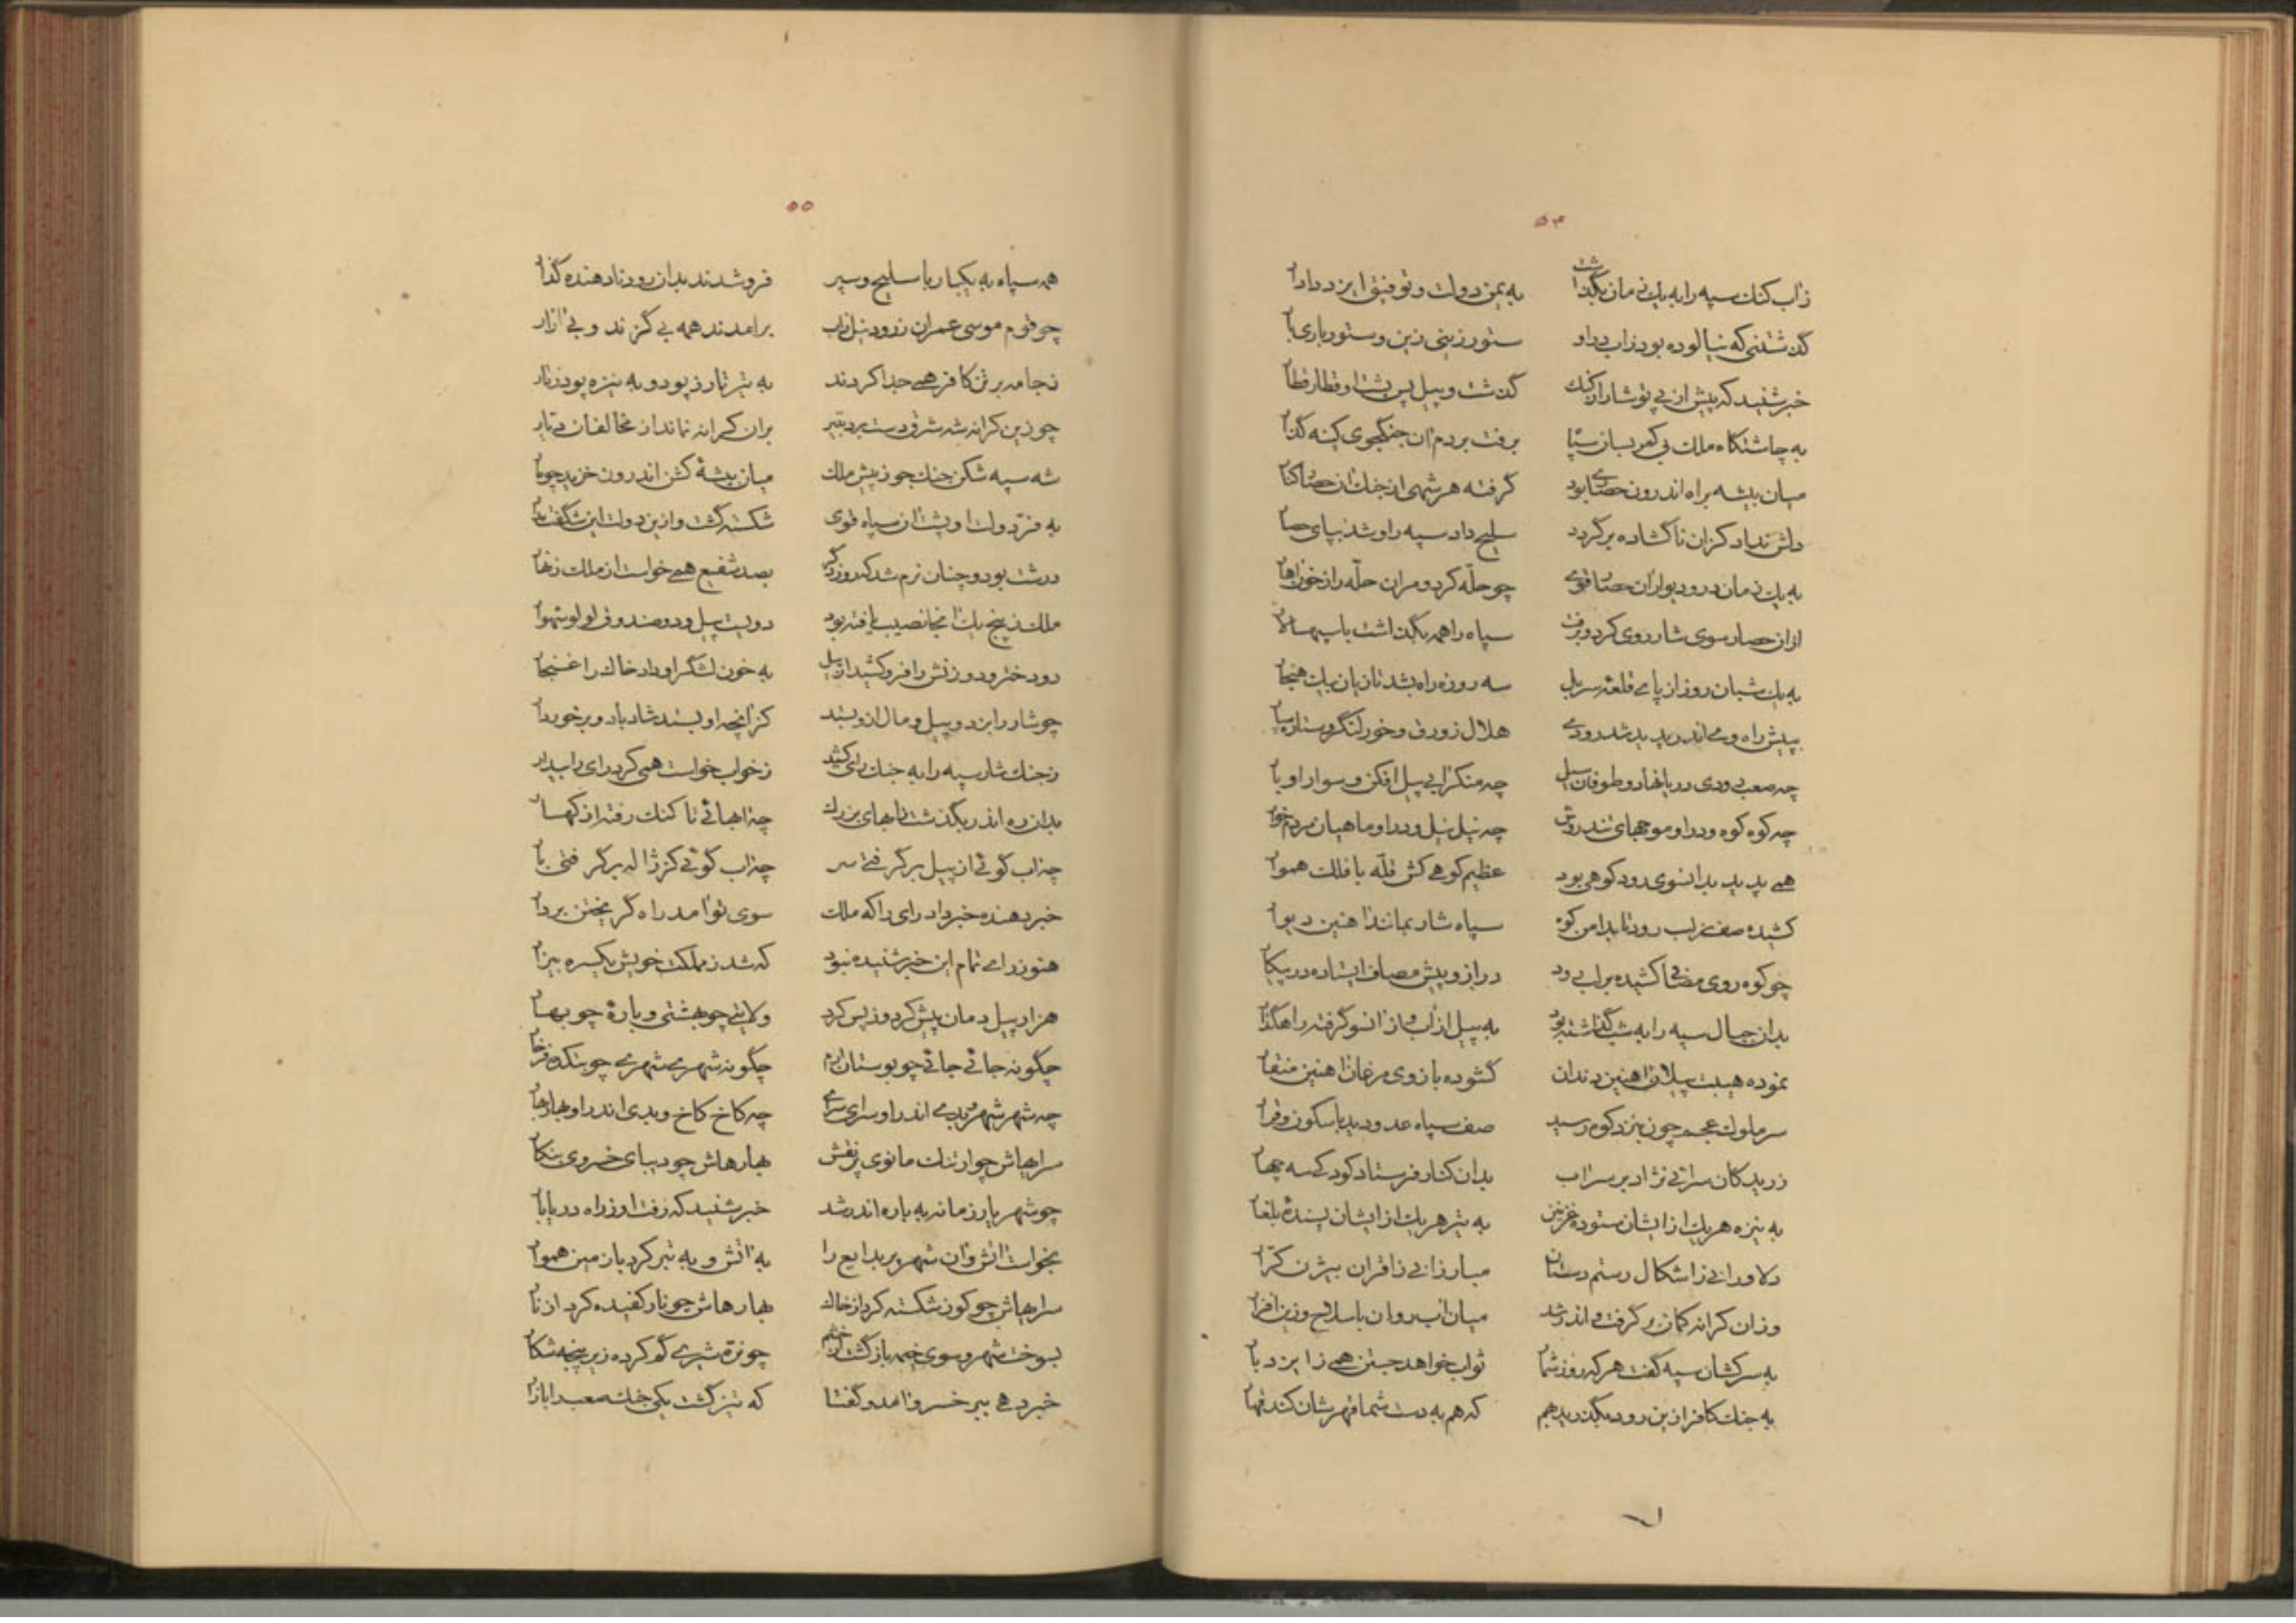 ۵۴
ز آب کنک سپه را به یک زمان بگذاشت به یمن دولت و توفیق ایزد دادار
گذشتنی که نیالوده بود ز آب در او ستور زینی زین و ستور باری بار
خبر شنید که پیش از پی تو شار از کنک گذشت و پیل پس پشت او قطار قطار
به چاشتگاه ملک بی کمر بسان سپاه برفت بر دم آن جنگجوی کینه گذار
میان بیشه براه اندرون حصاری بود گرفته هر شهی از جنک آن حصار کنار
دلش نداد کزان ناگشاده برگردد سلیح داد سپه را و شد بپای حصار
به یک زمان در و دیوار آن حصار قوی چو حله کرد و مران حله را ز خون آهار
از آن حصار سوی شار روی کرد و برفت سپاه را همه بگذاشت با سپهسالار
به یک شبان روز از پای قلعه سربل سه روزه راه بشد تازیان به یک هنجار
بپیش راه وی اندر پدید شد رودی هلال زورق و خور لنگر و ستاره سیار
چه صعب رودی دریا نهاد و طوفان سیل چه منکر آبی پیل افکن و سوار او بار
چه کوه کوه در او موجهای تند روش چه نیل نیل در او ماهیان مردم خوار
همی پدید بدانسوی رود کوهی بود عظیم کوهی کش قله با فلک هموار
کشیده صف ز لب رود تا بدامن کوه سپاه شار بمانند آهنین دیوار
چو کوه روی مضافی کشیده بر لب رود دراز و پیش مصاف ایستاده در پیکار
بدان جبال سپه را به شب گذاشته بود به پیل از آب و از آنسو گرفته راهگذار
نموده هیبت پیلان آهنین دندان گشوده بازوی مرغان آهنین منقار
سر ملوک عجم چون بنزد کوه رسید صف سپاه عدو دید با سکون و قرار
ز ریدکان سرائی نژاد بر سر آب بدان کنار فرستاد کودکی سه چهار
به نیزه هر یک از ایشان ستوده غزنین به تیر هر یک از ایشان پسندۀ بلغار
دلاورانی ز اشکال رستم دستان مبارزانی ز اقران بیژن کرار
وز آن کرانه کمان برگرفت و اندر شد میان آب روان با سلاح و زین افزار
به سرکشان سپه گفت هر که روز شمار ثواب خواهد جستن همی ز ایزد بار
به جنک کافر ازین رود بگذرید بهم که هم به دست شما قهرشان کند قهار
۵۵
همه سپاه به یکبار با سلیح و سپر فرو شدند بدان رود نادهنده گذار
چو قوم موسی عمران ز رود نیل ز آب برآمدند همه بی گزند و بی آزار
ز جامه بر تن کافر همی جدا کردند به تیر تار ز پود و به نیزه پود ز تار
چو زین کرانه شه شرق دست برد به تیر بر آن کرانه نماند از مخالفان دیار
شه سپه شکن جنک جو ز پیش ملک میان بیشۀ گشن اندرون خزید چو مار
به فر دولت او پشت آن سپاه قوی شکسته گشت و ازین دولت این شگفت مدار
درشت بود و چنان نرم شد که روز دگر بصد شفیع همی خواست از ملک زنهار
ملک ز پنج یک آنجا نصیب یافته بود دویست پیل و دو صندوق لولو شهوار
دو دختر و دو زنش را فرو کشید از پیل به خون لشگر او داد خاک را غنجار
چو شار را بزد و پیل و مال ازو بستد کز آنچه او بستد شاد باد و برخوردار
ز جنک شار سپه را به جنک رای کشید ز خواب خواست همی کرد رای را بیدار
بدان ره اندر بگذشت ز آبهای بزرک چه آبهائی تا کنک رفته از کهسار
چه آب گوئی از پیل برگرفتی سر چه آب گوئی کز ژاله برگرفتی بار
خبر دهنده خبر داد رای را که ملک سوی تو آمد راه گریختن بردار
هنوز رای تمام این خبر شنیده نبود که شد ز مملکت خویش یکسره بیزار
هزار پیل دمان پیش کرد و ز پس کرد ولایتی چو بهشتی و بارۀ چو بهار
چگونه جائی جائی چو بوستان ارم چگونه شهری شهری چو بتکده فرخار
چه شهر شهری اندر او سرای سرای چه کاخ کاخ و بدی اندر او بهار بهار
سراهاش چو ارتنک مانوی پر نقش بهارهاش چو دیبای خسروی بنگار
چو شهریار زمانه به باره اندر شد خبر شنید که رفت او ز راه دریا بار
بخواست آتش و آن شهر پر بدایع را به آتش و به تبر کرد با زمین هموار
سراهاش چو کوز شکسته کرد از خاک بهارهاش چو نار کفیده کرد از نار
بسوخت شهر و سوی خیمه بازگشت از خشم چو نره شیری گم کرده زیر پنجه شکار
خبر دهی بر خسرو آمد و گفتا که تیز گشت یکی جنک صعب را بازار